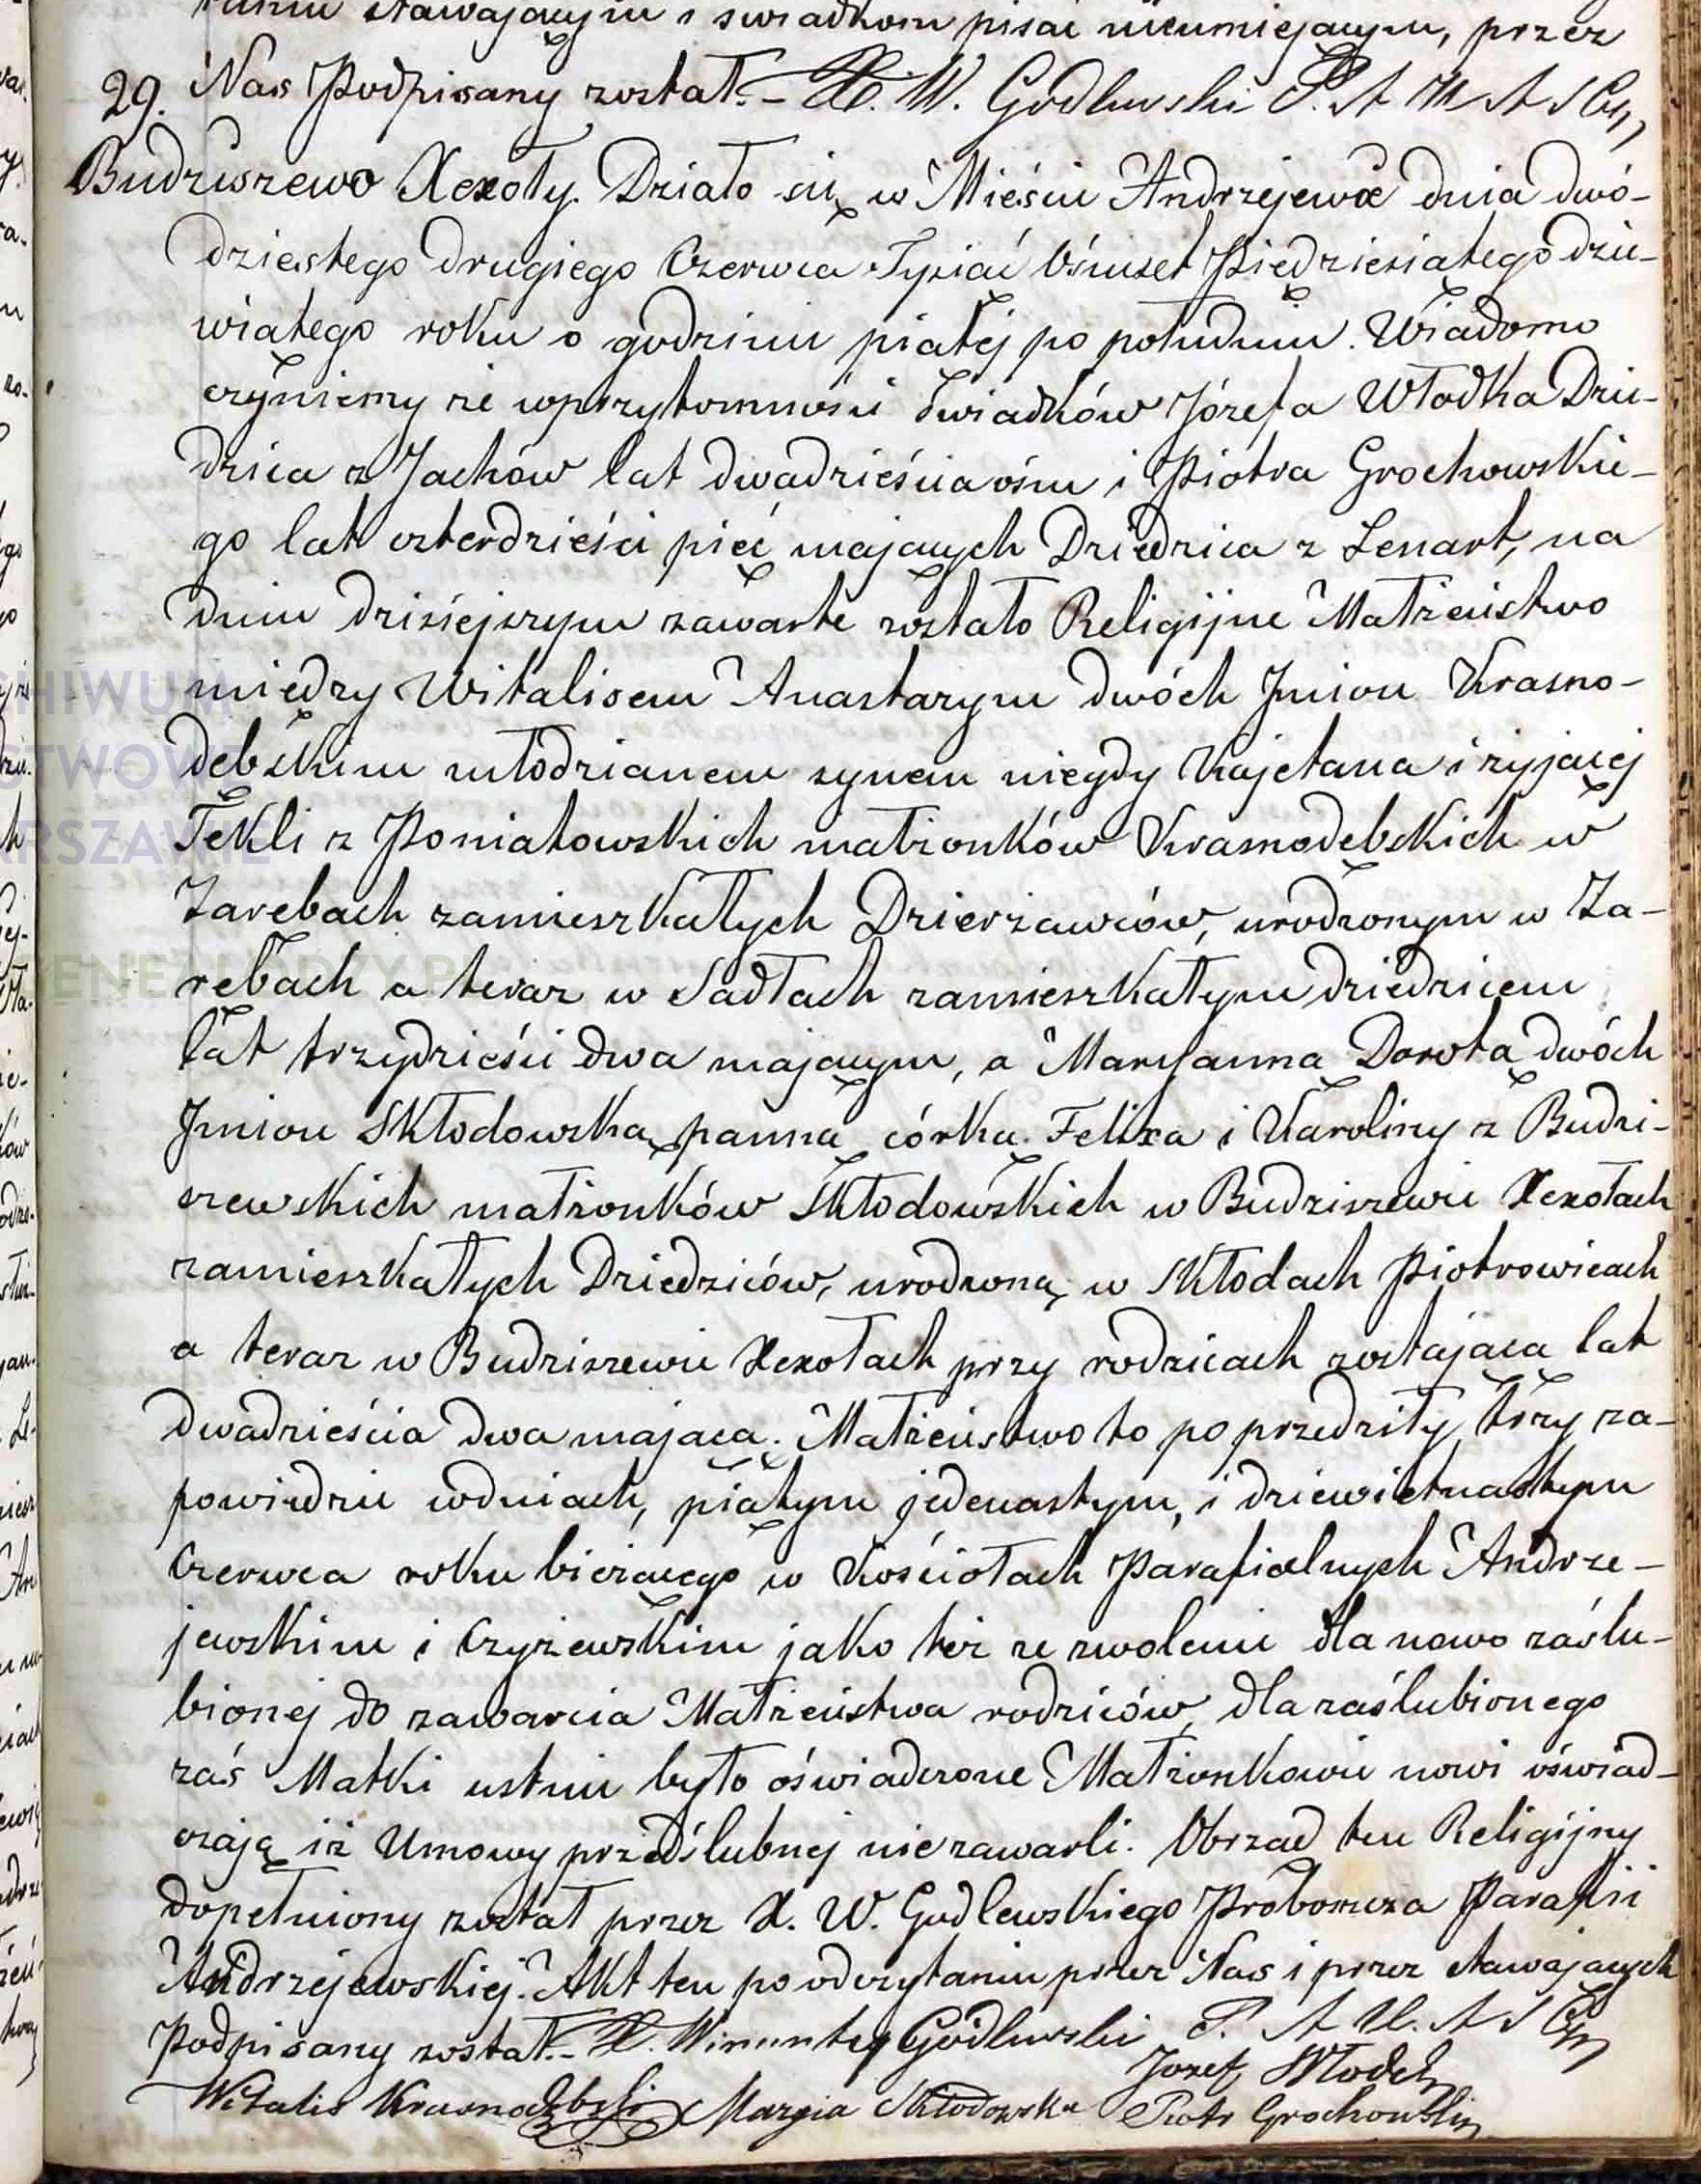 stawającym i świadkom pisać nieumiejącym, przez
29. Nas Podpisany został. – X. W. Godlewski P. A
Budziszewo Xexoły. Działo się w Mieście Andrzejewie dnia dwó-
dziestego drugiego Czerwca Tysiąć Ośmset Piędziesiątego dzie-
wiątego roku o godzinie piątej po południu. Wiadomo
czyniemy że wprzytomności Świadków Józefa Włodka Dzie-
dzica z Jachów lat dwadzieścia ośm i Piotra Grochowskie-
go lat czterdzieści pięć mających Dziedzica z Lenart, na
dniu dzisiejszym zawarte zostało Religijne Małżeństwo
między Witalisem Anastazym dwóch Jmion Krasno-
dębskim młodzianem synem niegdy Kajetana i żyjącej
Tekli z Poniatowskich małżonków Krasnodębskich w
Zarębach zamieszkałych Dzierżawców, urodzonym w Za-
rębach a teraz w Sadłach zamieszkałym dziedzicem
lat trzydzieści dwa mającym, a Maryanną Dorotą dwóch
Jmion Skłodowską panną córką Felixa i Karoliny z Budzi-
szewskich małżonków Skłodowskich w Budziszewie Xexołach
zamieszkałych Dziedziców, urodzoną w Skłodach Piotrowicach
a teraz w Budziszewie Xexołach przy rodzicach zostającą lat
dwadzieścia dwa mającą. Małżeństwo to poprzedziły trzy za-
powiedzie wdniach, piątym jedenastym, i dziewiętnastym
Czerwca roku bieżącego w Kościołach Parafialnych Andrze-
jewskim i Czyżewskim jako też ze zwolenie dla nowo zaślu-
bionej do zawarcia Małżeństwa rodziców, dla zaślubionego
zaś Matki ustnie było oświadczone Małżonkowie nowi oświad-
czają iż Umowy przedślubnej nie zawarli. Obrząd ten Religijny
dopełniony został przez X. W. Godlewskiego Proboszcza Parafii
Andrzejewskiej. Akt ten po odczytaniu przez Nas i przez stawających
Podpisany został. – X. Wincenty Godlewski P. A
Józef Włodek
Witalis Krasnodębski Maryia Skłodowska Piotr Grochowski